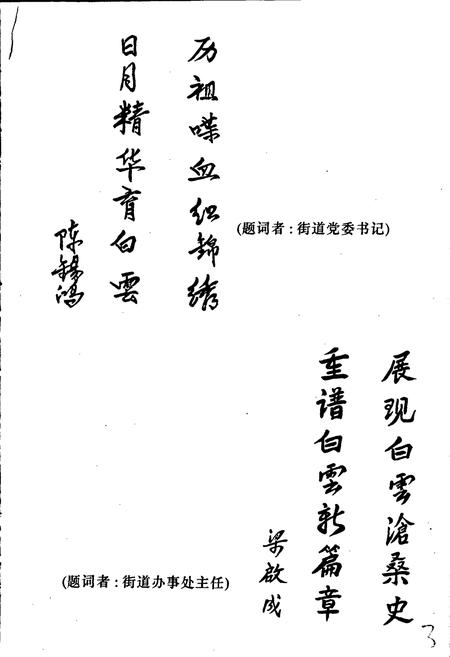 历祖喋血织錦綉
日月精华育白雲
陈錫鴻
(题词者：街道党委书记)
展现白雲滄桑史
重谱白雲新篇章
梁啟成
(题词者：街道办事处主任)
3